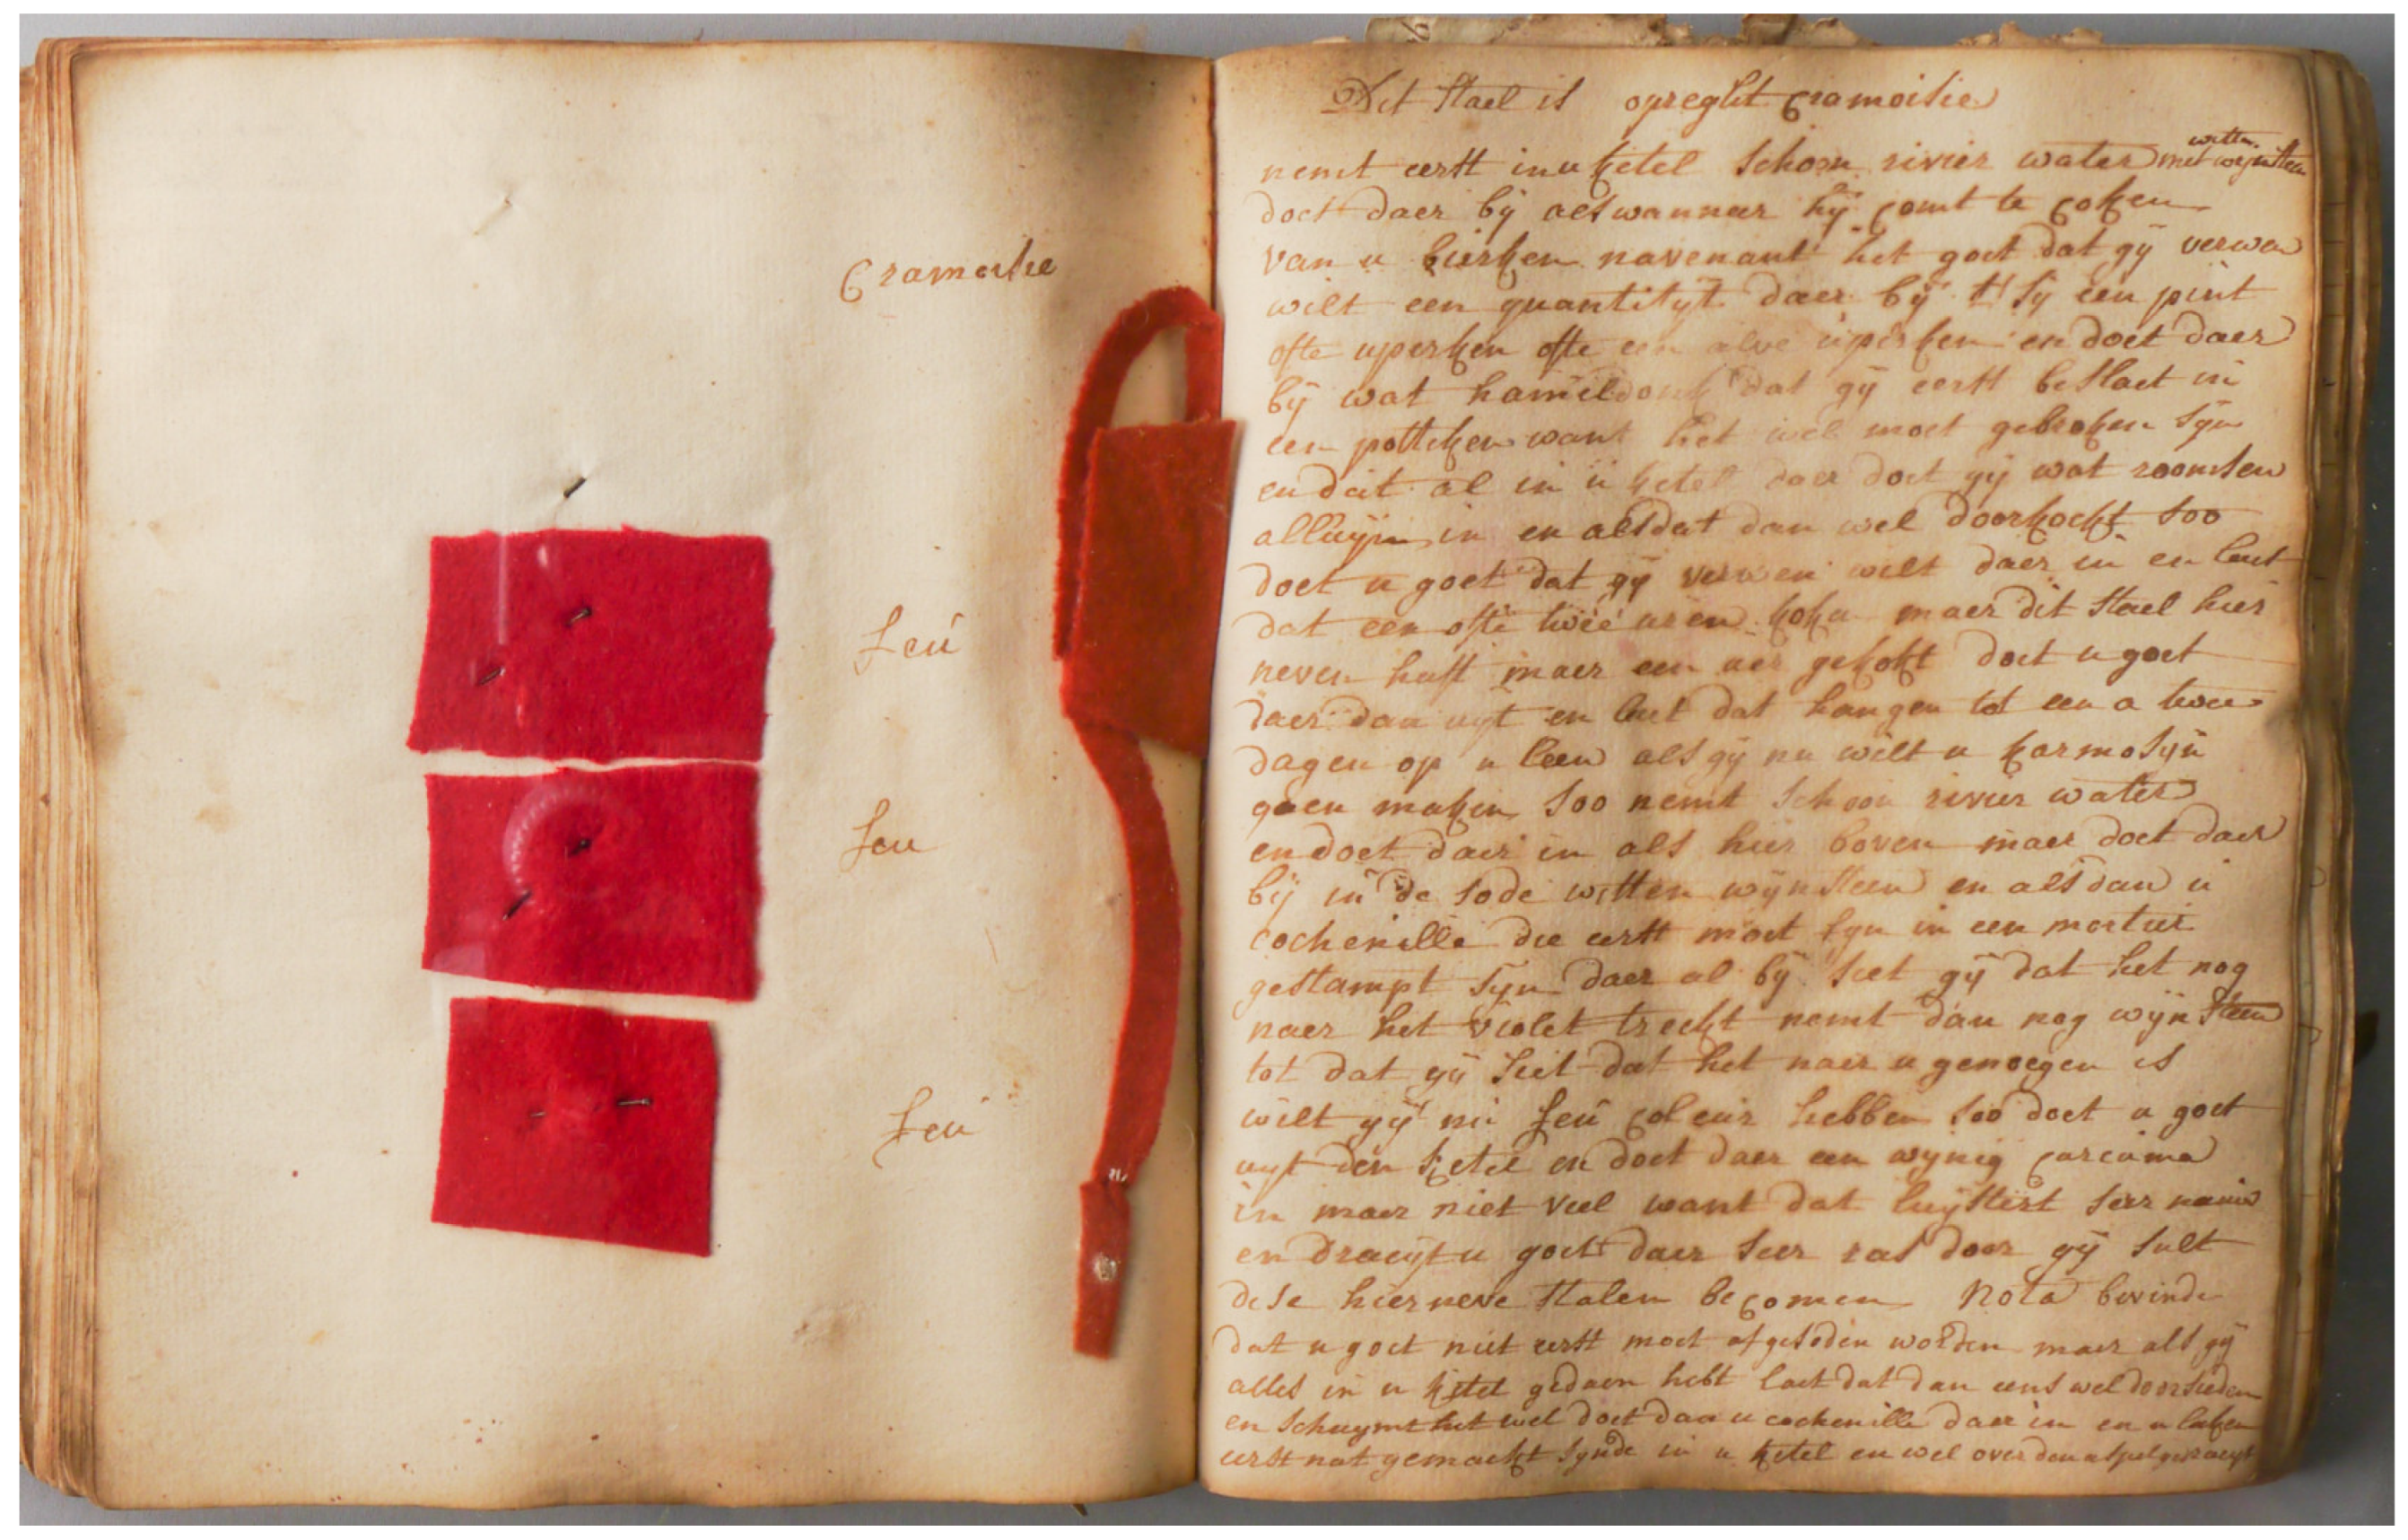 Cramoisie
feu
feu
feu
Dit stael is opreght cramoisie
witten
nemt eerst in u ketel schoon rivier water met wynsteen
doet daer bÿ als wanneer hÿ comt te coken
van u bierken navenant het goet dat gÿ verwen
wilt een quantityt daer bÿ t'sÿ een pint
ofte uperken ofte een alve uperken en doet daer
bÿ wat hameldonk dat gÿ eerst beslaet in
een potteken want het wel moet gebroken syn
en dat al in u ketel daer doet gÿ wat roomsen
alluyn in en als dat dan wel doorkockt soo
doet u goet dat gÿ verwen wilt daer in en laet
dat een ofte twee uren koken maer dit stael hier
neven heeft maer een uer gekokt doet u goet
daer dan uyt en laet dat hangen tot een a twee
dagen op u leen als gÿ nu wilt u karmosyn
gaen maken soo nemt schoon rivier water
en doet daer in als hier boven maer doet daer
bÿ in de sode witten wÿnsteen en als dan u
cochenille die eerst moet fyn in een mortier
gestampt syn daer al bÿ siet gÿ dat het nog
naer het violet treckt nemt dan nog wÿnsteen
tot dat gÿ siet dat het naer u genoegen is
wilt gÿ nu feu coleur hebben soo doet u goet
uyt den ketel en doet daer een wÿnig curcuma
in maer niet veel want dat luystert seer nauw
en draeyt u goet daer seer ras door gÿ sult
dese hier neve stalen becomen Nota bevinde
dat u goet niet eerst moet afgesoden worden maer als gÿ
alles in u ketel gedaen hebt laet dat dan eens wel doorsieden
en schuymt het wel doet dan u cochenille daer in en u laken
eerst nat gemaekt synde in u ketel en wel over den aspel gedraeyt